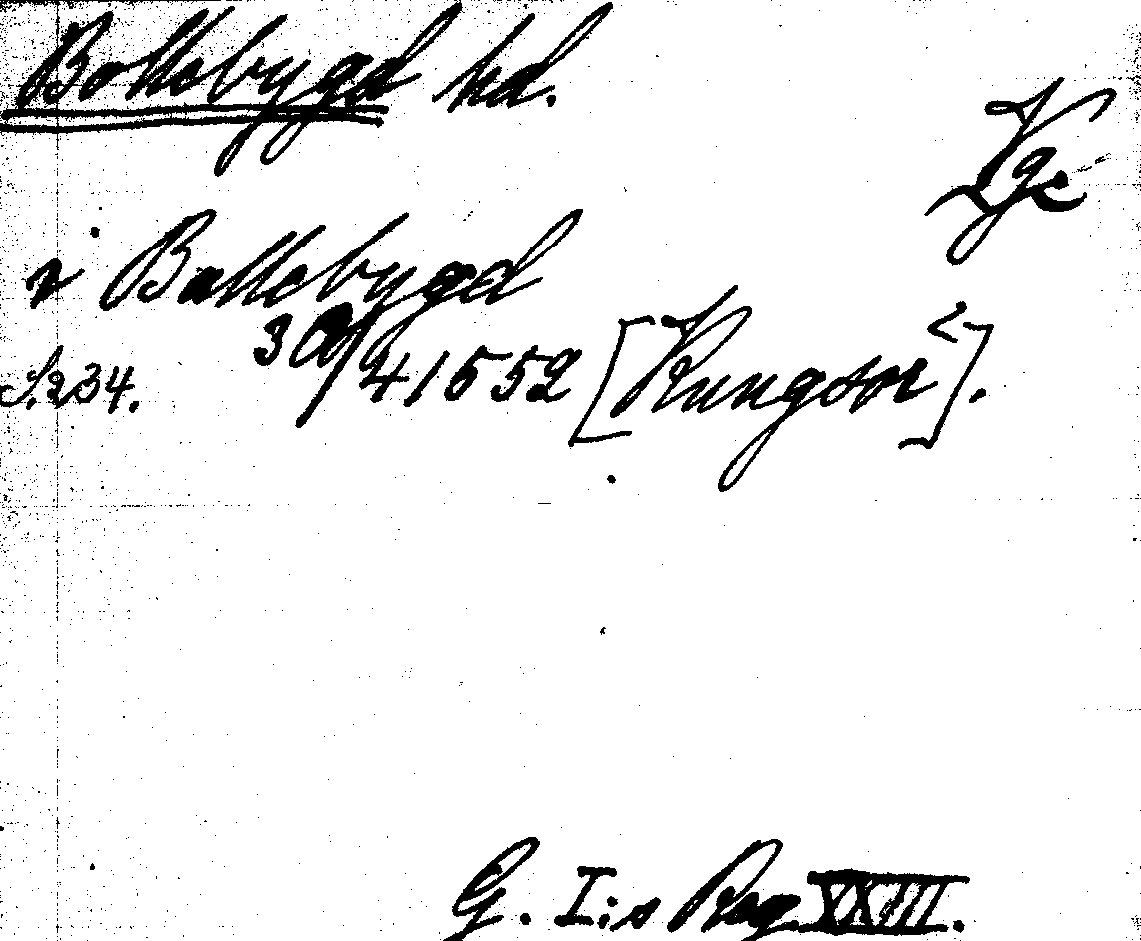 Bollebygd hd.
Vg
i Ballebygd
S. 234. 30/4 1552 [Kungsör].
G. I:s Reg XXIII.